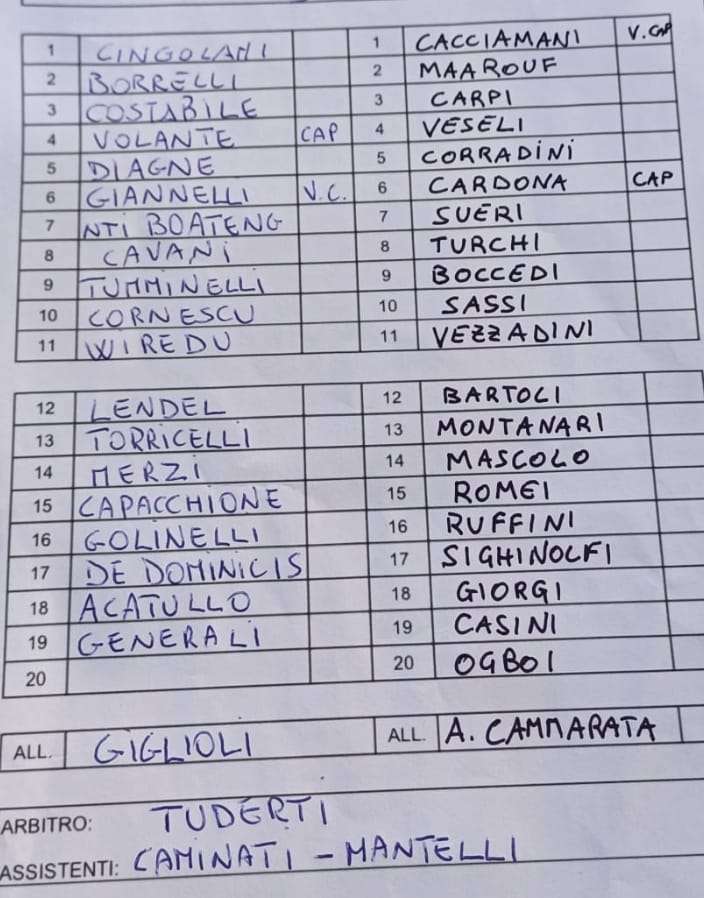 1 CINGOLANI 1 CACCIAMANI V. CAP
2 BORRELLI 2 MAAROUF
3 COSTABILE 3 CARPI
4 VOLANTE CAP 4 VESELI
5 DIAGNE 5 CORRADINI
6 GIANNELLI V.C. 6 CARDONA CAP
7 NTI BOATENG 7 SUERI
8 CAVANI 8 TURCHI
9 TUMMINELLI 9 BOCCEDI
10 CORNESCU 10 SASSI
11 WIREDU 11 VEZZADINI
12 LENDEL 12 BARTOLI
13 TORRICELLI 13 MONTANARI
14 MERZI 14 MASCOLO
15 CAPACCHIONE 15 ROMEI
16 GOLINELLI 16 RUFFINI
17 DE DOMINICIS 17 SIGHINOLFI
18 ACATULLO 18 GIORGI
19 GENERALI 19 CASINI
20 20 OGBOI
ALL. GIGLIOLI ALL. A. CAMMARATA
ARBITRO: TUDERTI
ASSISTENTI: CAMINATI - MANTELLI